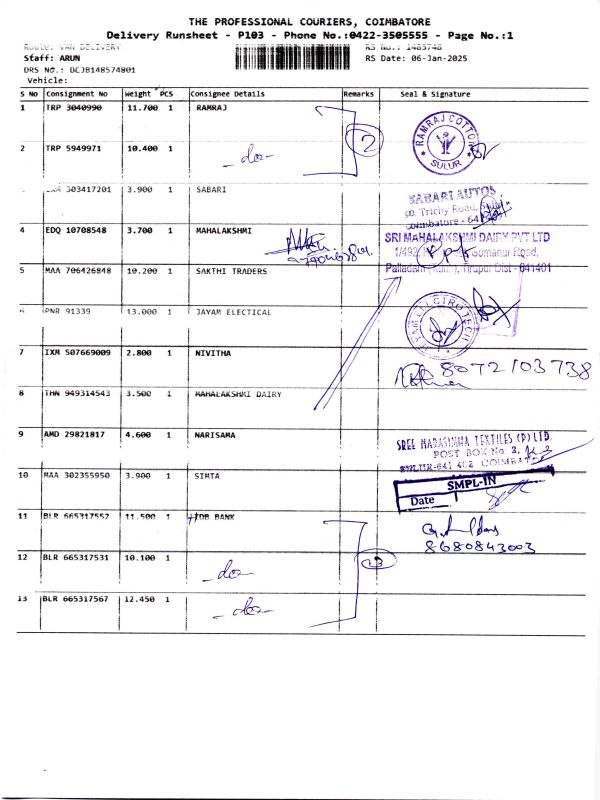 THE PROFESSIONAL COURIERS, COIMBATORE
Delivery Runsheet - P103 - Phone No.:0422-3505555 - Page No.:1
Route: VAN DELIVERY
RS No.: 1485748
Staff: ARUN
RS Date: 06-Jan-2025
DRS No.: DCJB148574801
Vehicle:
S No Consignment No Weight PCS Consignee Details Remarks Seal & Signature
1 TRP 3040990 11.700 1 RAMRAJ
RAMRAJ COTTON
SULUR
2
2 TRP 5949971 10.400 1 -do-
303417201 3.900 1 SABARI
SABARI AUTOS
Trichy Road, Sulur
Coimbatore - 641
4 EDQ 10708548 3.700 1 MAHALAKSHMI
SRI MAHALAKSHMI DAIRY PVT LTD
Somanur Road,
5 MAA 706426848 10.200 1 SAKTHI TRADERS
Palladam Tirupur Dist - 641401
6 PNR 91339 13.000 1 JAYAM ELECTICAL
JAYAM ELECTRO TECH
7 IXM 507669009 2.800 1 NIVITHA
8072103738
8 THN 949314543 3.500 1 MAHALAKSHMI DAIRY
9 AMD 29821817 4.600 1 NARISAMA
SREE NARASIMHA TEXTILES (P) LTD
POST BOX No: 3,
641 402 COIMBATORE
10 MAA 302355950 3.900 1 SIMTA
SMPL-IN
Date
11 BLR 665317552 11.500 1 HDB BANK
8680843003
12 BLR 665317531 10.100 1 -do-
13 BLR 665317567 12.450 1 -do-